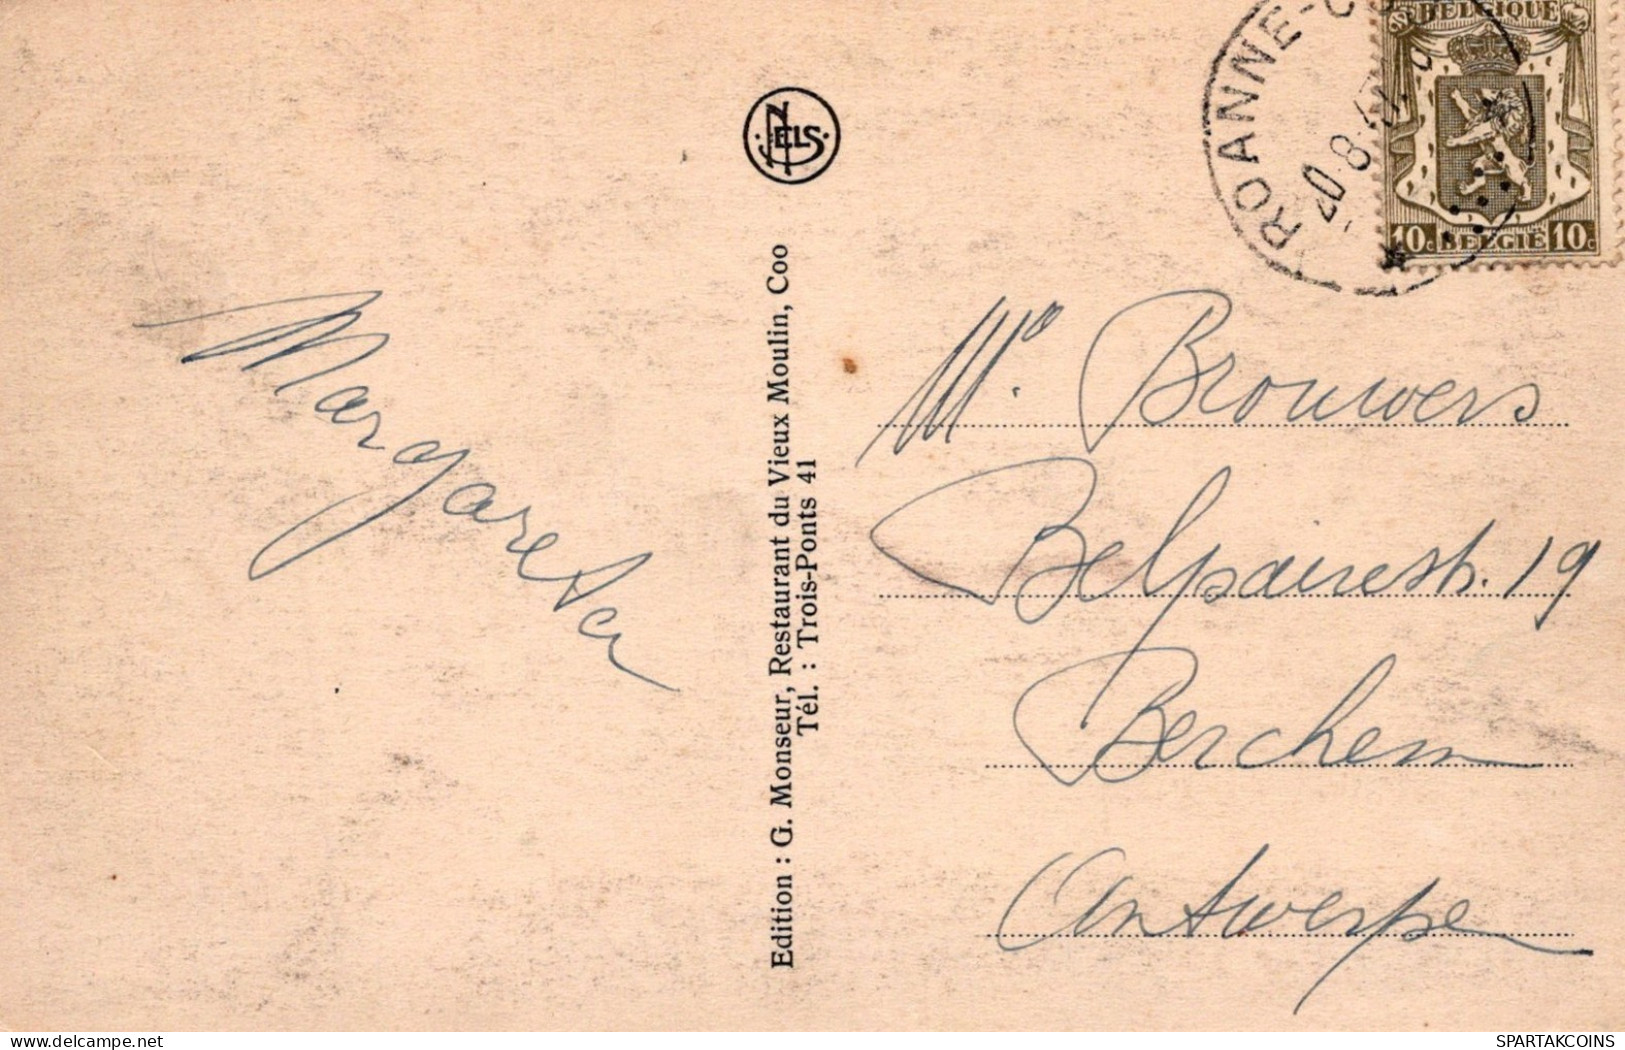 ROANNE-CO
20 8
BELGIQUE
10c BELGIË 10c
NELS
Margareta
Edition : G. Monseur, Restaurant du Vieux Moulin, Coo
Tél. : Trois-Ponts 41
Mo. Brouwers
Belpairestr. 19
Berchem
Antwerpen
SPARTAKCOINS
delcampe.net